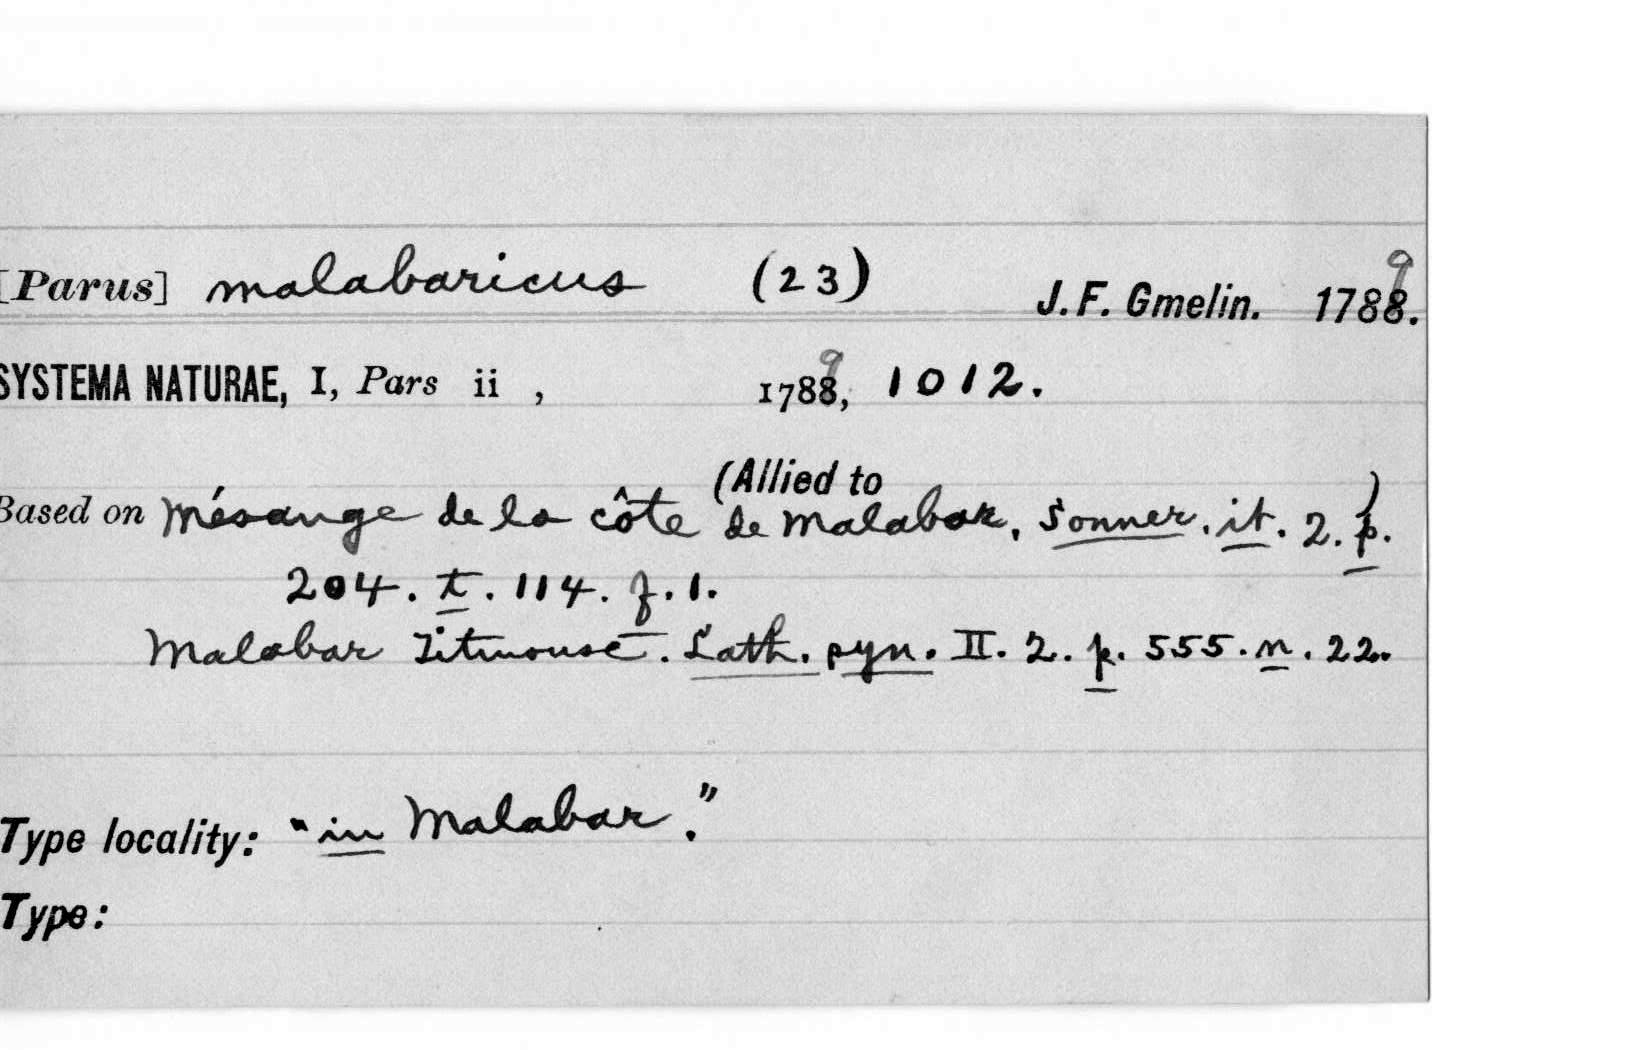 [Parus] malabaricus (23) J. F. Gmelin. 1788. 9
SYSTEMA NATURAE, I, Pars ii , 1788, 9 1012.
(Allied to )
Based on Mésange de la côte de Malabar, Sonner. it. 2. p.
204. t. 114. f. 1.
Malabar Titmouse. Lath. syn. II. 2. p. 555. n. 22.
Type locality: "in Malabar."
Type: